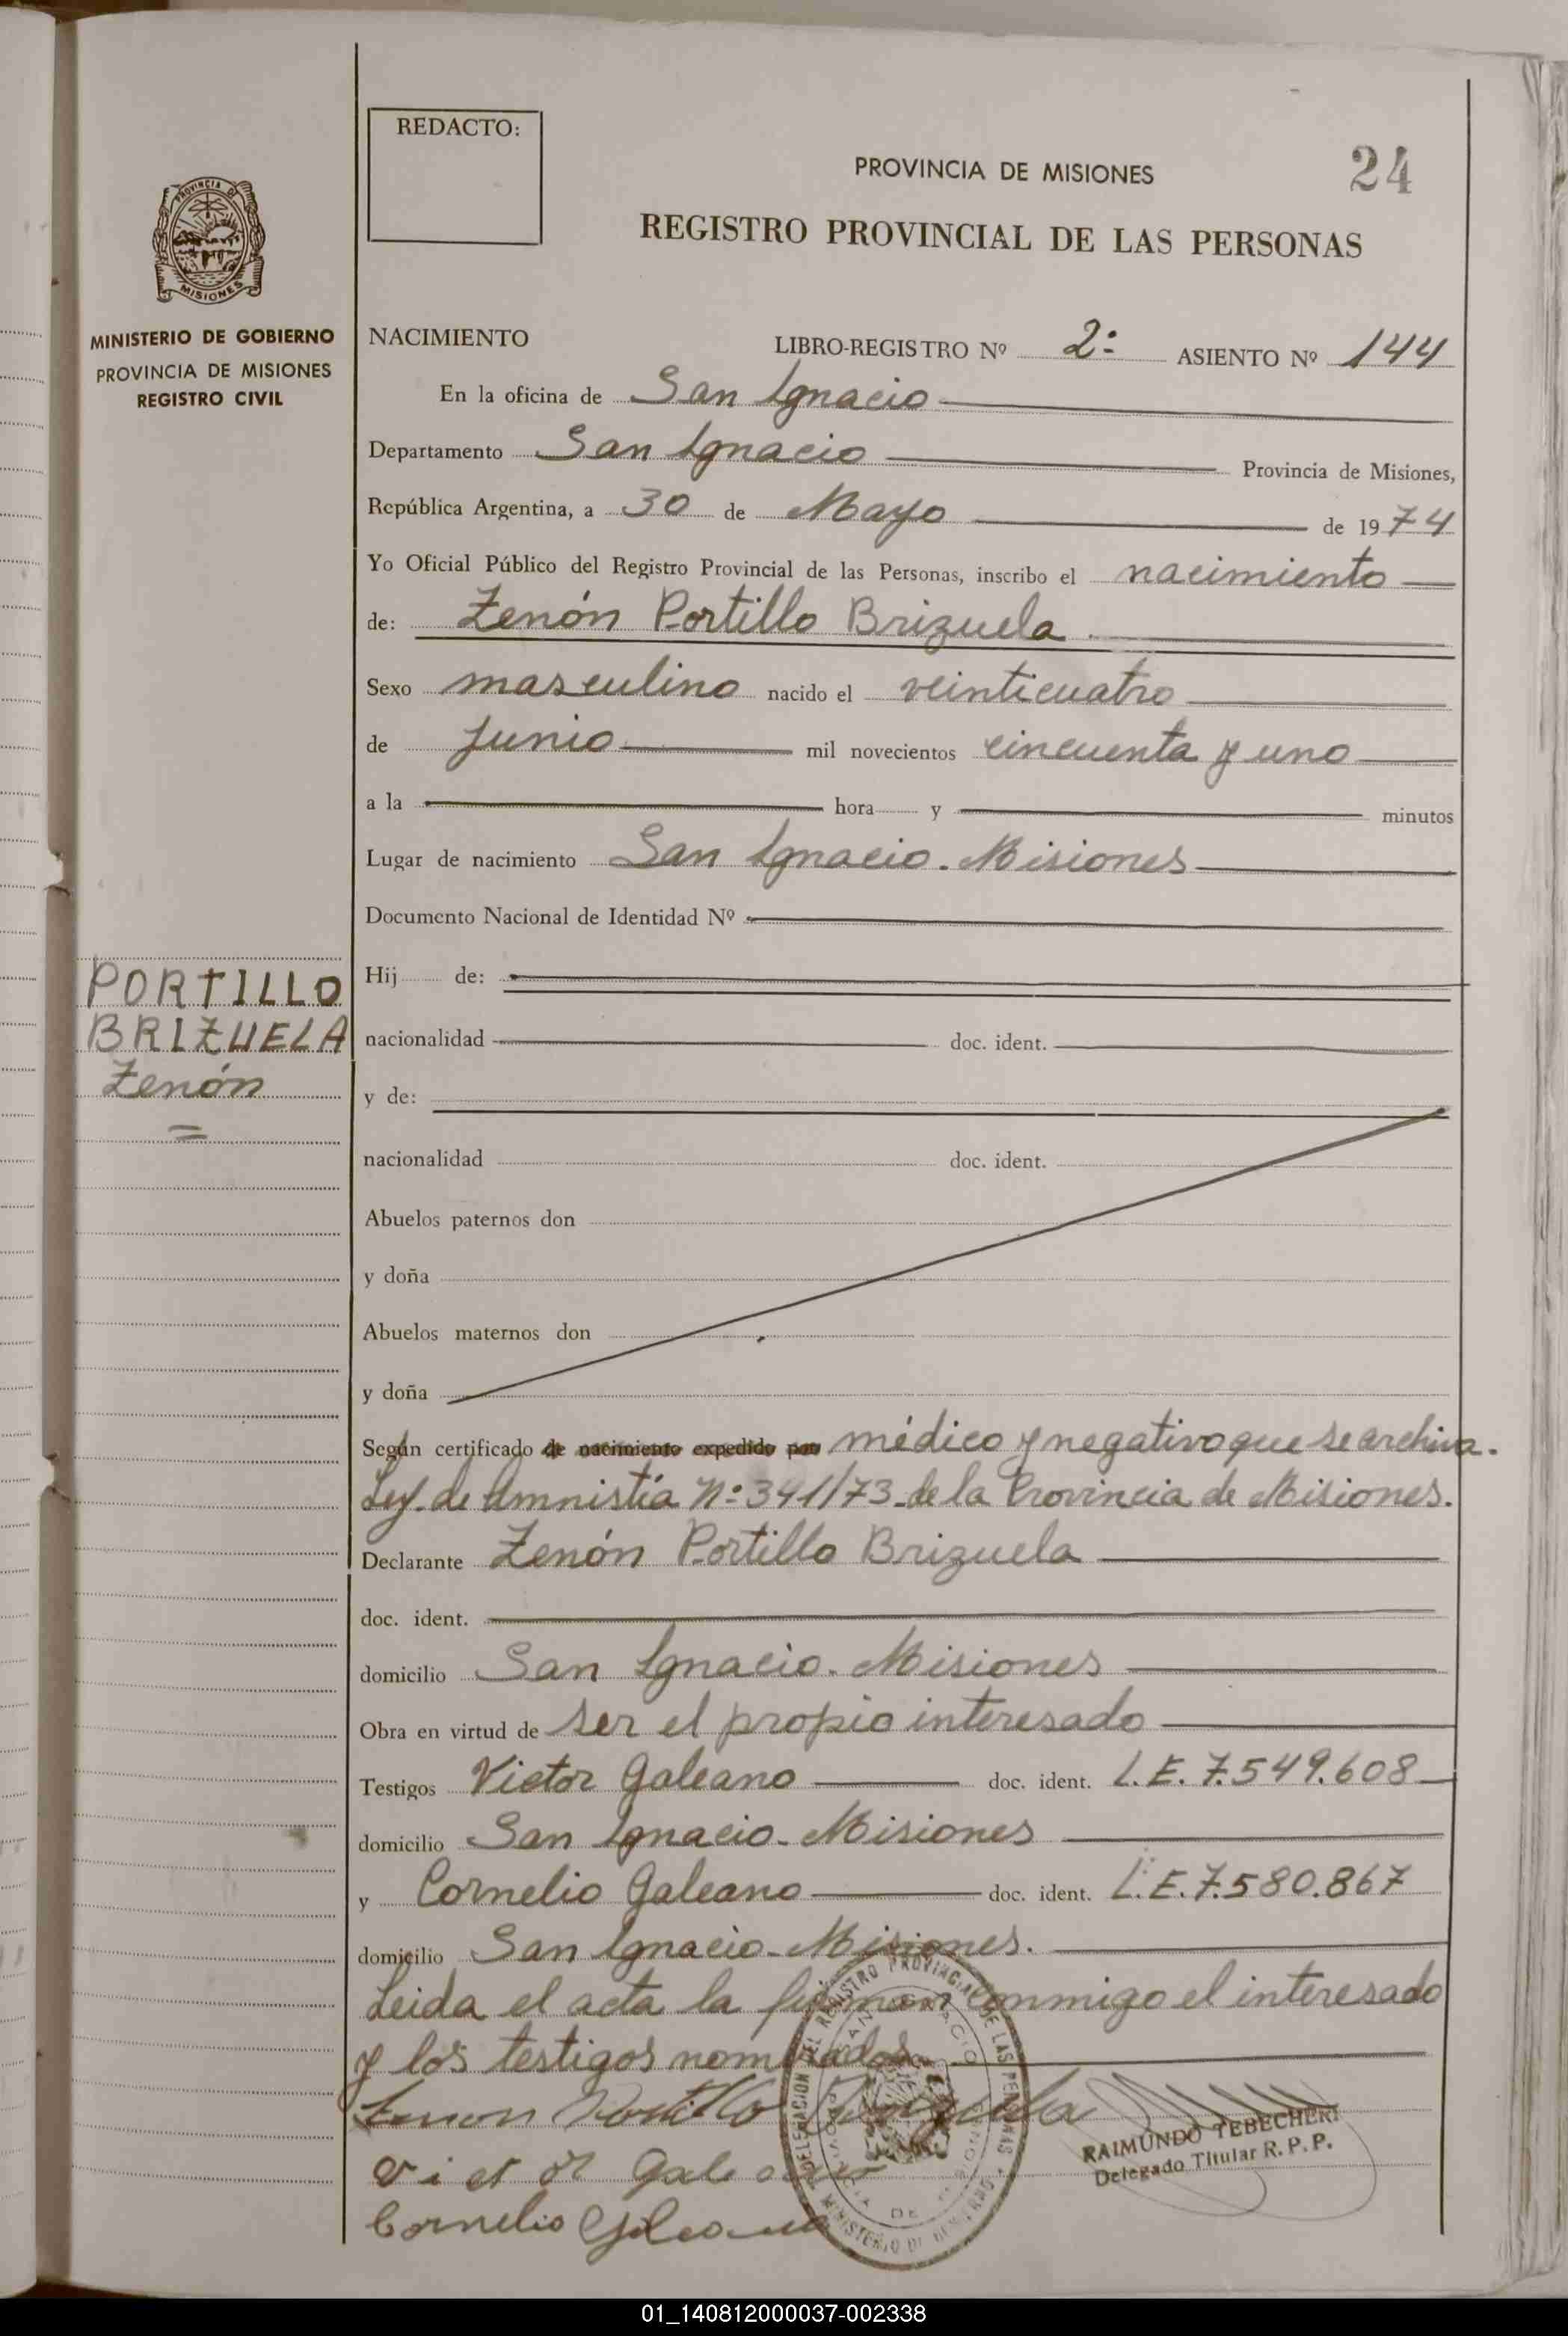 REDACTO:
PROVINCIA DE MISIONES
24
REGISTRO PROVINCIAL DE LAS PERSONAS
PROVINCIA DE
MISIONES
MINISTERIO DE GOBIERNO
PROVINCIA DE MISIONES
REGISTRO CIVIL
PORTILLO
BRIZUELA
Zenón
NACIMIENTO LIBRO-REGISTRO Nº 2º ASIENTO Nº 144
En la oficina de San Ignacio
Departamento San Ignacio Provincia de Misiones,
República Argentina, a 30 de Mayo de 1974
Yo Oficial Público del Registro Provincial de las Personas, inscribo el nacimiento
de: Zenón Portillo Brizuela
Sexo masculino nacido el veinticuatro
de junio mil novecientos cincuenta y uno
a la hora y minutos
Lugar de nacimiento San Ignacio. Misiones
Documento Nacional de Identidad Nº
Hij de:
nacionalidad doc. ident.
y de:
nacionalidad doc. ident.
Abuelos paternos don
y doña
Abuelos maternos don
y doña
Según certificado de nacimiento expedido por médico y negativo que se archiva.
Ley de Amnistía Nº 341/73 de la Provincia de Misiones.
Declarante Zenón Portillo Brizuela
doc. ident.
domicilio San Ignacio. Misiones
Obra en virtud de ser el propio interesado
Testigos Victor Galeano doc. ident. L.E. 7.549.608
domicilio San Ignacio. Misiones
y Cornelio Galeano doc. ident. L.E. 7.580.867
domicilio San Ignacio. Misiones.
Leida el acta la firman conmigo el interesado
y los testigos nombrados
Zenon Portillo Brizuela
Victor Galeano
Cornelio Galeano
DELEGACION DEL REGISTRO PROVINCIAL DE LAS PERSONAS
MINISTERIO DE GOBIERNO
SAN IGNACIO
PROVINCIA DE MISIONES
RAIMUNDO TEBECHERI
Delegado Titular R. P. P.
01_140812000037-002338